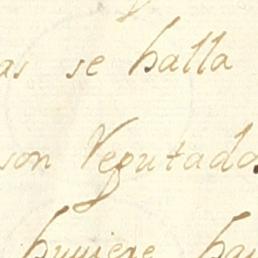 as se halla
son Veputado
huviere ha